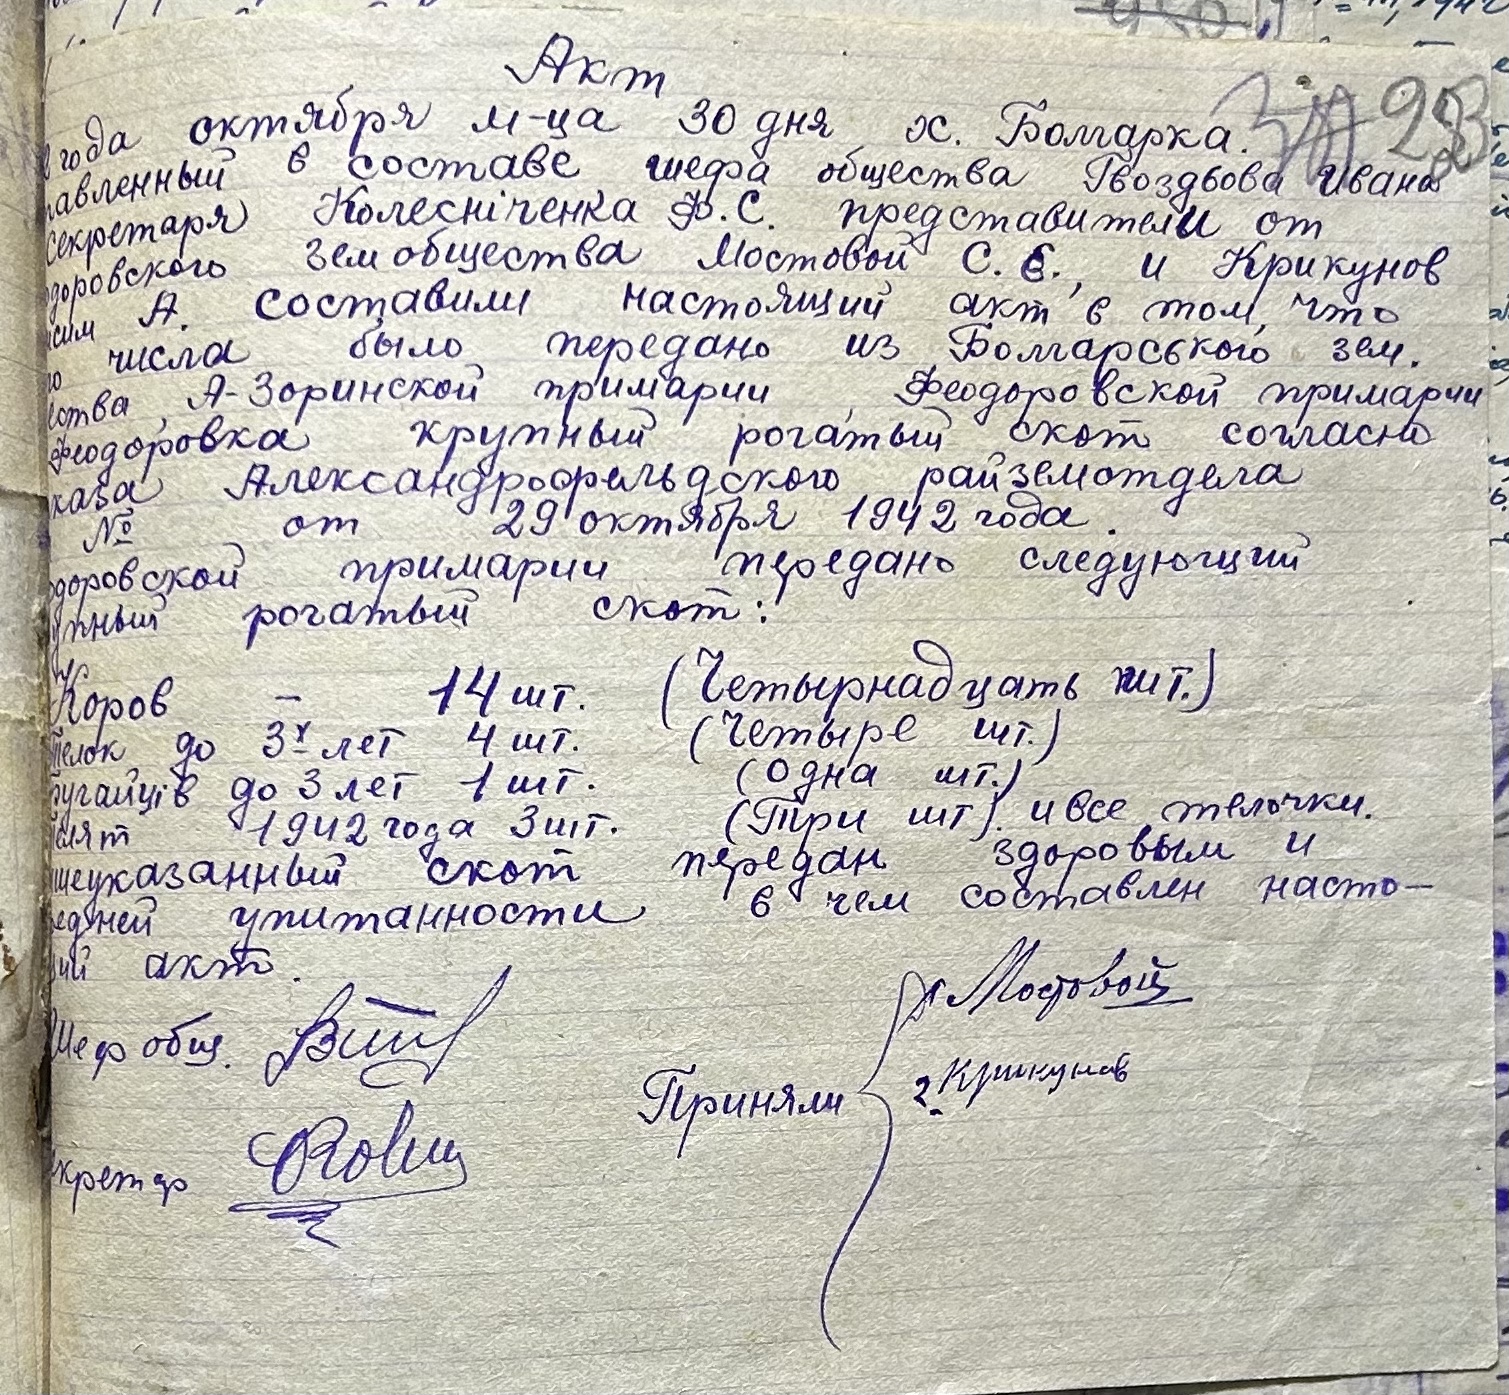 Акт
2 года октября м-ца 30 дня х. Болгарка. 28
тавленный в составе шефа общества Гвоздьова Ивана
секретаря Колесніченка Ф.С. представители от
одоровского земобщества Мостовой С.Е., и Крикунов
асим А. составили настоящий акт в том, что
го числа было передано из Болгарського зем.
ества А-Зоринской примарии, Феодоровской примарии
Феодоровка крупный рогатый скот согласно
каза Александрофельдского райземотдела
№ от 29 октября 1942 года.
одоровской примарии передано следующий
упный рогатый скот:
Коров – 14 шт. (Четырнадцать шт.)
телок до 3х лет 4 шт. (Четыре шт.)
бугайців до 3 лет 1 шт. (Одна шт.)
телят 1942 года 3 шт. (Три шт). и все телочки.
шеуказанный скот передан здоровым и
едней упитанности в чем составлен насто-
щий акт.
Шеф общ.
Приняли
Мостовой
2. Крикунов
екретар